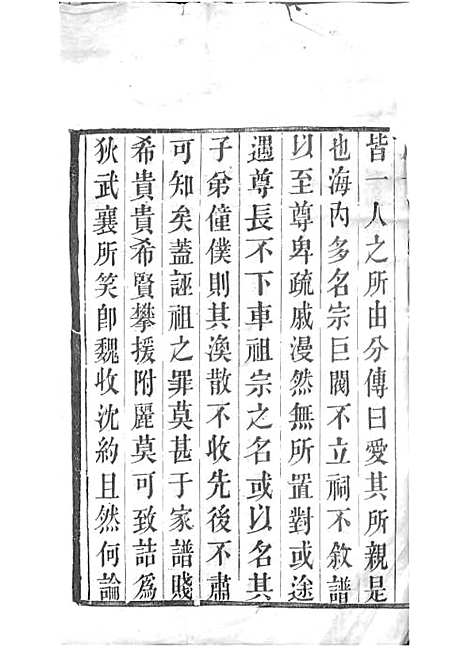 皆一人之所由分傳曰愛其所親是
也海內多名宗巨閥不立祠不敘譜
以至尊卑疏戚漫然無所置對或途
遇尊長不下車祖宗之名或以名其
子弟僮僕則其渙散不收先後不肅
可知矣葢誣祖之罪莫甚于家譜賤
希貴貴希賢攀援附麗莫可致詰爲
狄武襄所笑卽魏收沈約且然何論